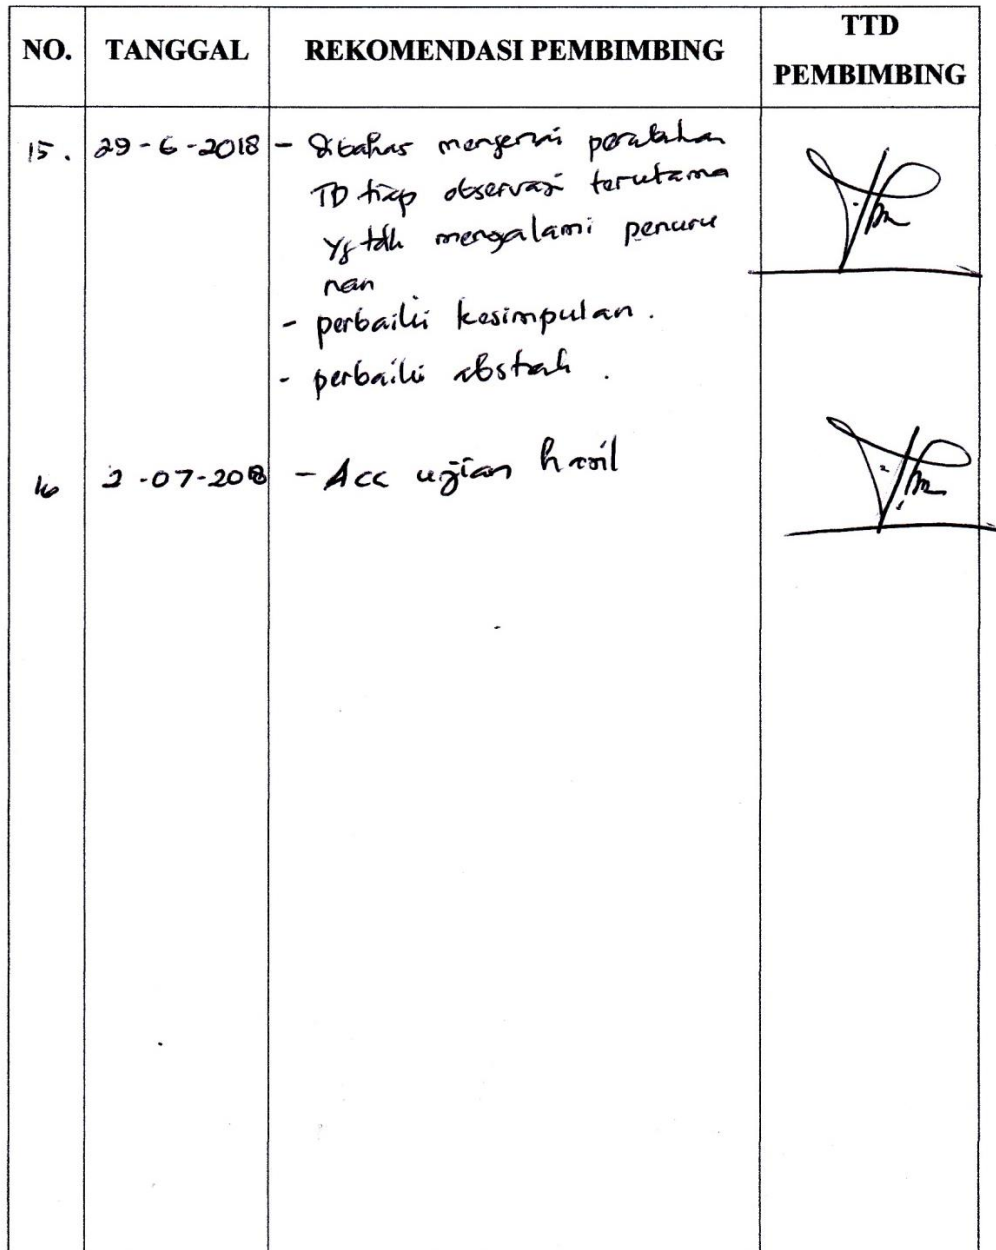 NO. TANGGAL REKOMENDASI PEMBIMBING TTD PEMBIMBING
15. 29-6-2018 - Dibahas mengenai perubahan
TD tiap observasi terutama
yg tdk mengalami penuru
nan
- perbaiki kesimpulan.
- perbaiki abstrak.
16 2-07-2018 - Acc ujian hasil